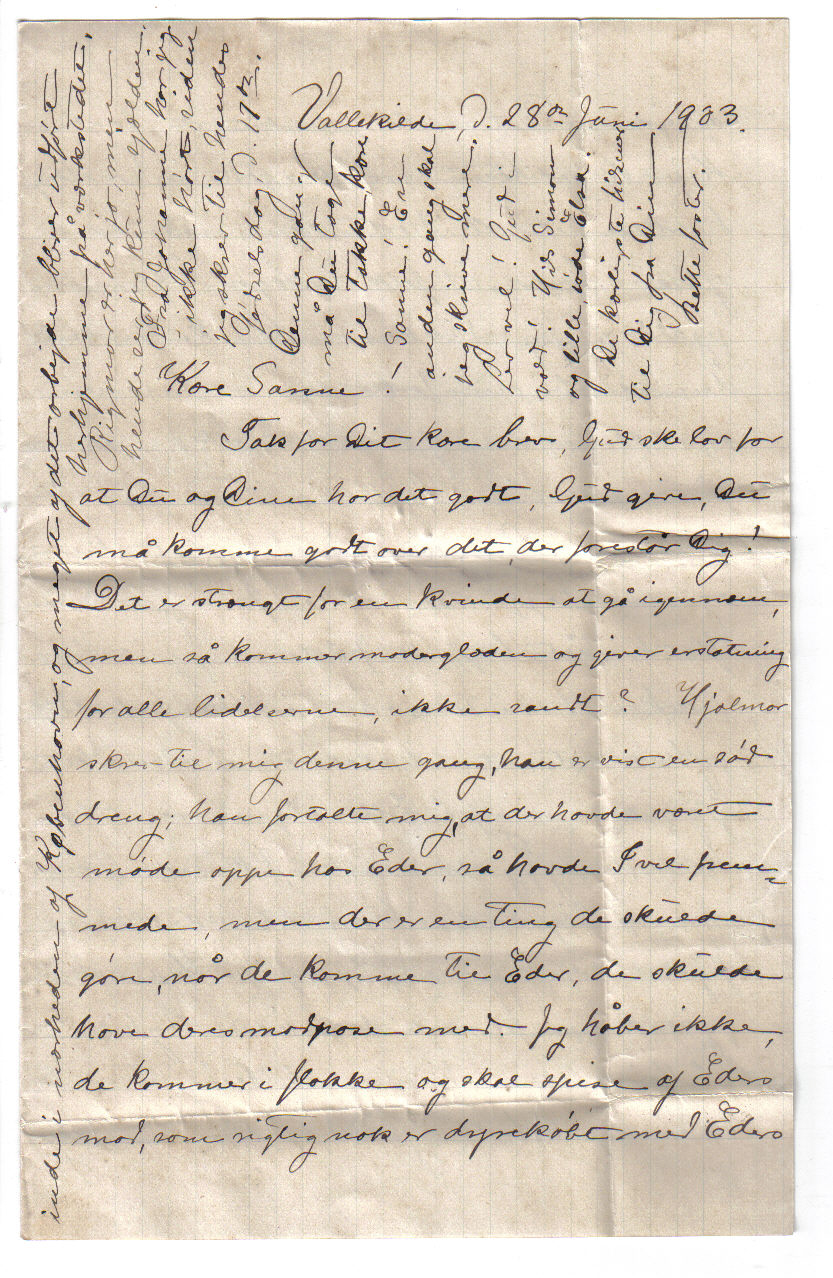 Vallekilde, d. 28de Juni 1903.
Kære Sanne!
Tak for Dit kære brev, Gud ske lov for
at Du og Dine har det godt, Gud give, Du
må komme godt over det, der forestår Dig!
Det er strengt for en kvinde at gå igennem,
men så kommer moderglæden og giver erstatning
for alle lidelserne, ikke sandt? Hjalmar
skrev til mig denne gang, han er vist en sød
dreng; han fortalte mig, at der havde været
møde oppe hos Eder, så havde I vel frem-
mede, men der er en ting de skulde
gøre, når de komme til Eder, de skulde
have deres madpose med. Jeg håber ikke,
de kommer i flokke og skal spise af Eders
mad, som rigtig nok er dyrekøbt med Eders
inde i nærheden af København, og meget af det arbejde bliver udført
herhjemme på værkstedet.
Rigmor er her jo, men
hende ser jeg kun sjælden.
Fra Johanne har jeg
ikke hørt, siden
jeg skrev til hendes
fødselsdag, d. 17de.
Denne gang
må Du tage
til takke, kære
Sanne! En
anden gang skal
jeg skrive mere.
Lev vel! Gud i
vold! Hils Simon
og lille, søde Elsa.
De kærligste hilsener
til Dig fra Din
faster.